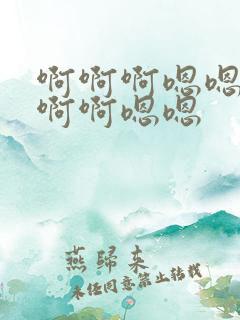 啊啊啊嗯嗯
啊啊嗯嗯
燕归来
未经同意禁止转载